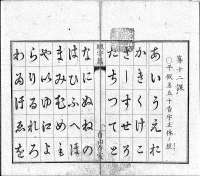 第十二課
あいうえお
かきくけこ
さしすせそ
たちつてと
なにぬねの
はひふへほ
まみむめも
やいゆえよ
らりるれろ
わゐうゑを